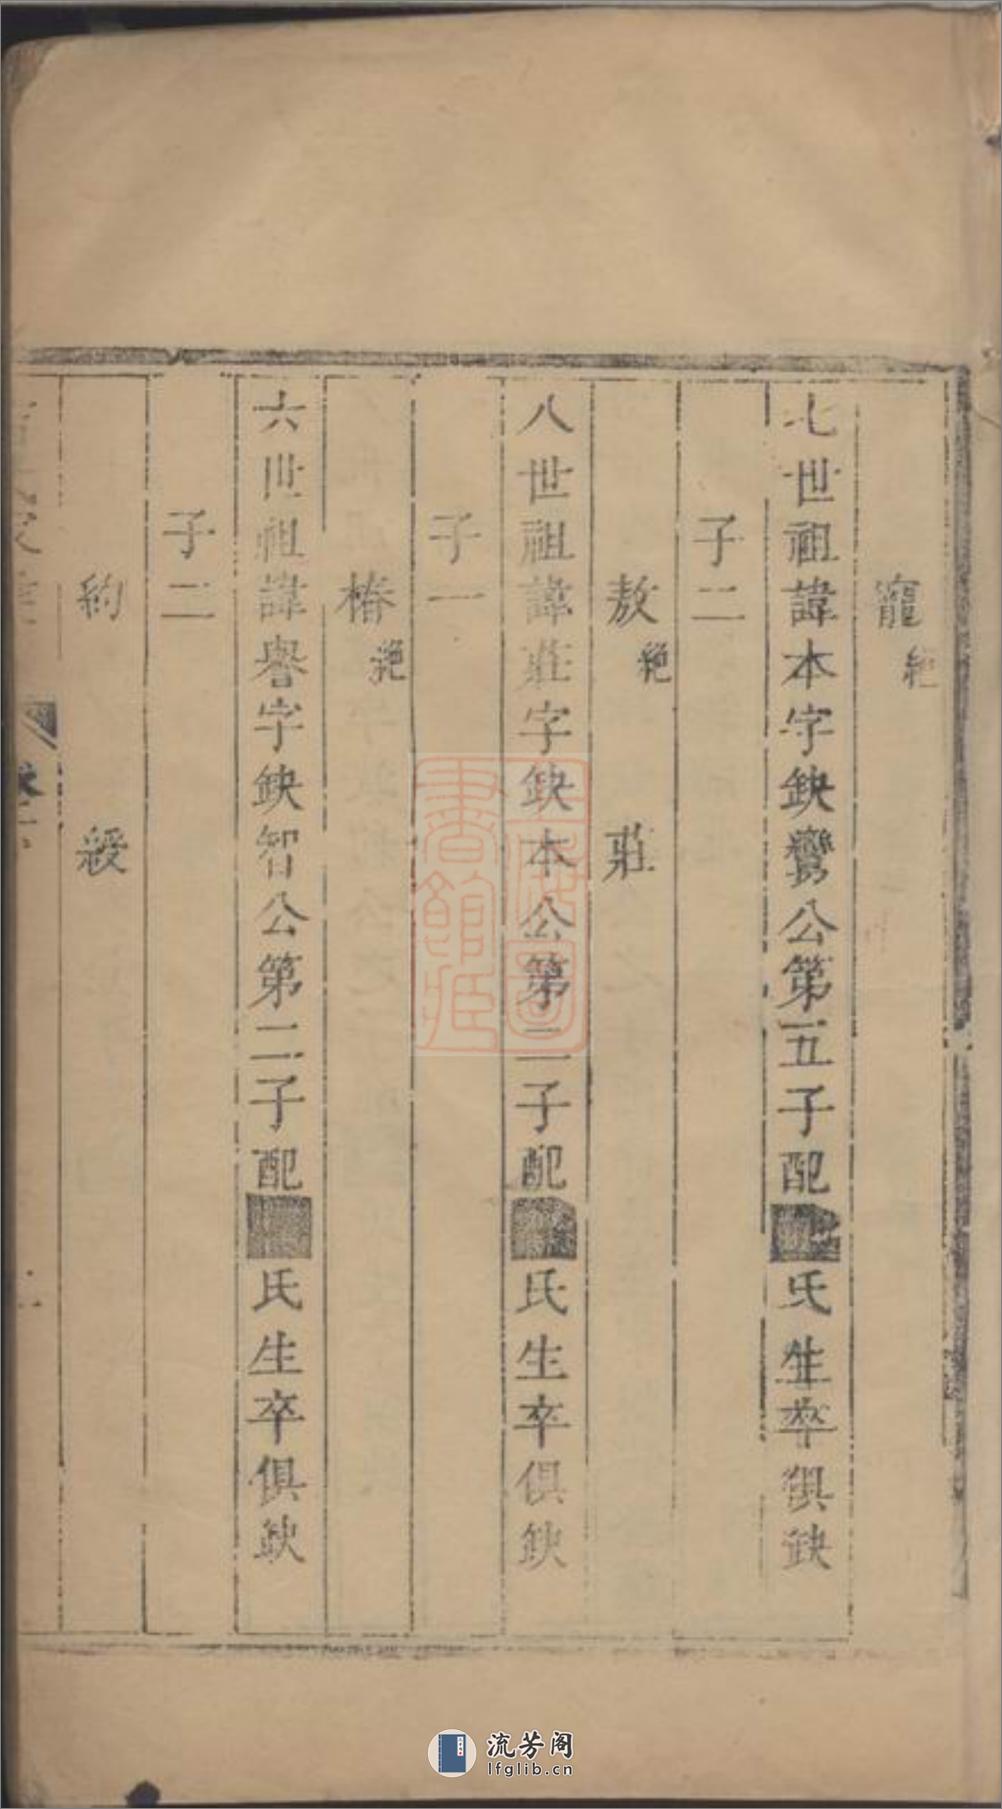 寵絕
七世祖諱本字鈌鸞公第五子配氏生卒俱鈌
子二
敖絕 莊
八世祖諱莊字鈌本公第二子配氏生卒俱鈌
子一
椿絕
六世祖諱譽字鈌智公第二子配氏生卒俱鈌
子二
約 綬
流芳阁
lfglib.cn